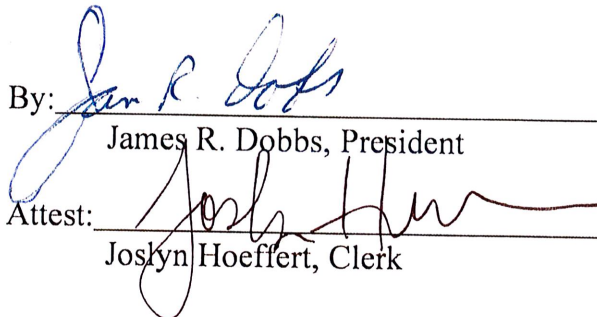 By: Jam R. Dobbs
James R. Dobbs, President
Attest: Joslyn H
Joslyn Hoeffert, Clerk